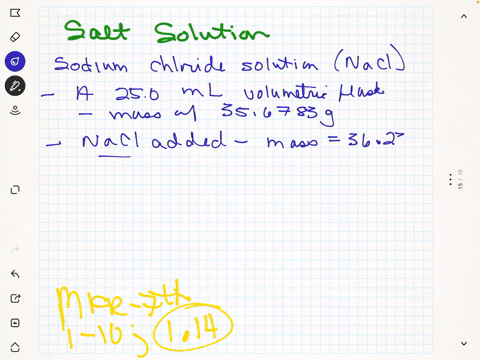 Salt Solution
Sodium chloride solution (NaCl)
- A 25.0 mL volumetric flask
- mass of 35.6783g
- NaCl added - mass = 36.2
1-10; 1.14
15 / 15